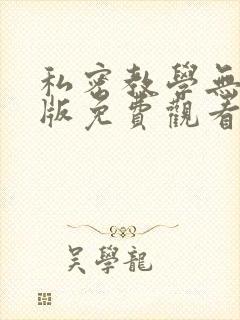 私密教學無
版免費觀看
吳學龍